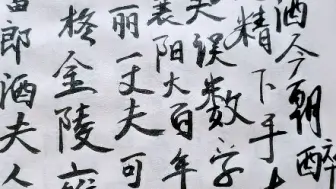 酒今朝醉
精下手
误数学
襄阳大百年
丽丈夫可
金陵
郎酒夫人